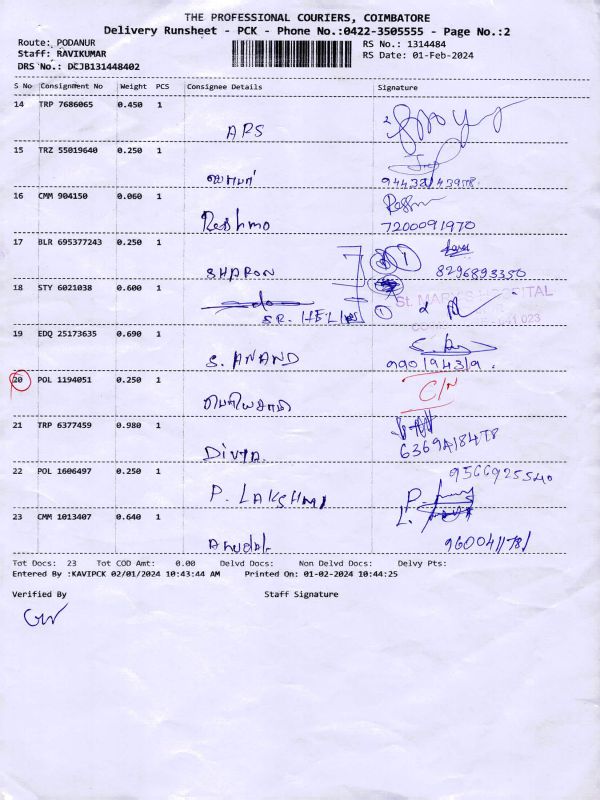 THE PROFESSIONAL COURIERS, COIMBATORE
Delivery Runsheet - PCK - Phone No.:0422-3505555 - Page No.:2
Route: PODANUR
RS No.: 1314484
Staff: RAVIKUMAR
RS Date: 01-Feb-2024
DRS No.: DCJB131448402
S No Consignment No Weight PCS Consignee Details Signature
14 TRP 7686065 0.450 1
ARS
15 TRZ 55019640 0.250 1
16 CMM 904150 0.060 1
Reshmo
7200091970
17 BLR 695377243 0.250 1
SHARON 8296893350
18 STY 6021038 0.600 1
St. MARY'S HOSPITAL
SR. HELIN
19 EDQ 25173635 0.690 1
S. ANAND
20 POL 1194051 0.250 1
C/N
21 TRP 6377459 0.980 1
DIVYA
22 POL 1606497 0.250 1
9566925540
P. LAKSHMI
23 CMM 1013407 0.640 1
Tot Docs: 23 Tot COD Amt: 0.00 Delvd Docs: Non Delvd Docs: Delvy Pts:
Entered By :KAVIPCK 02/01/2024 10:43:44 AM Printed On: 01-02-2024 10:44:25
Verified By Staff Signature